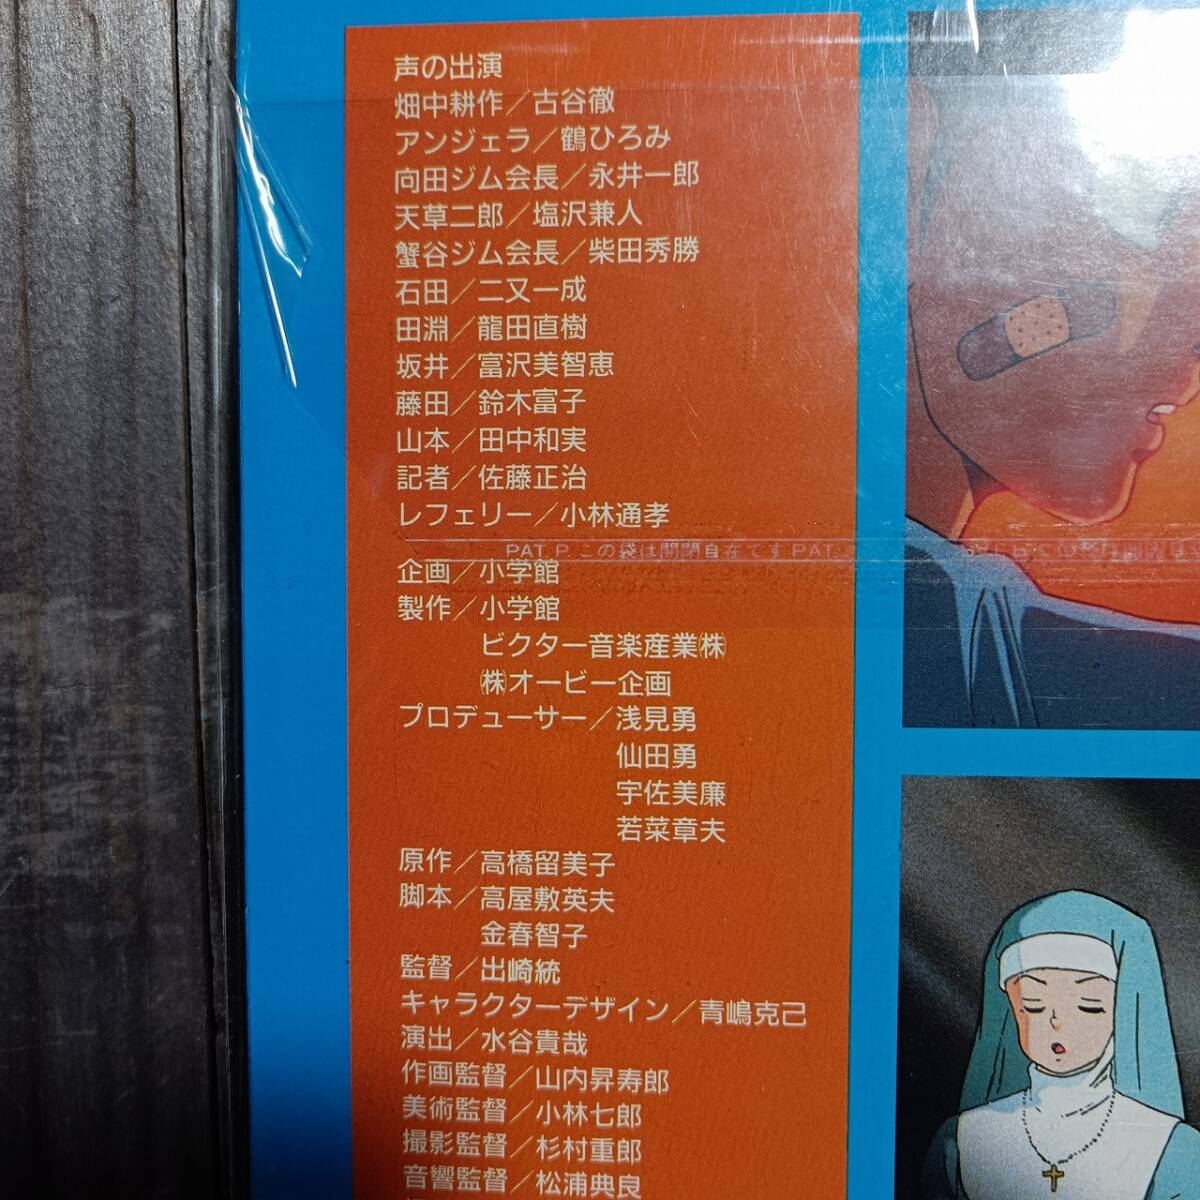 声の出演
畑中耕作／古谷徹
アンジェラ／鶴ひろみ
向田ジム会長／永井一郎
天草二郎／塩沢兼人
蟹谷ジム会長／柴田秀勝
石田／二又一成
田淵／龍田直樹
坂井／富沢美智恵
藤田／鈴木富子
山本／田中和実
記者／佐藤正治
レフェリー／小林通孝
PAT.P.この袋は開閉自在です PAT.
企画／小学館
製作／小学館
ビクター音楽産業㈱
㈱オービー企画
プロデューサー／浅見勇
仙田勇
宇佐美廉
若菜章夫
原作／高橋留美子
脚本／高屋敷英夫
金春智子
監督／出崎統
キャラクターデザイン／青嶋克己
演出／水谷貴哉
作画監督／山内昇寿郎
美術監督／小林七郎
撮影監督／杉村重郎
音響監督／松浦典良